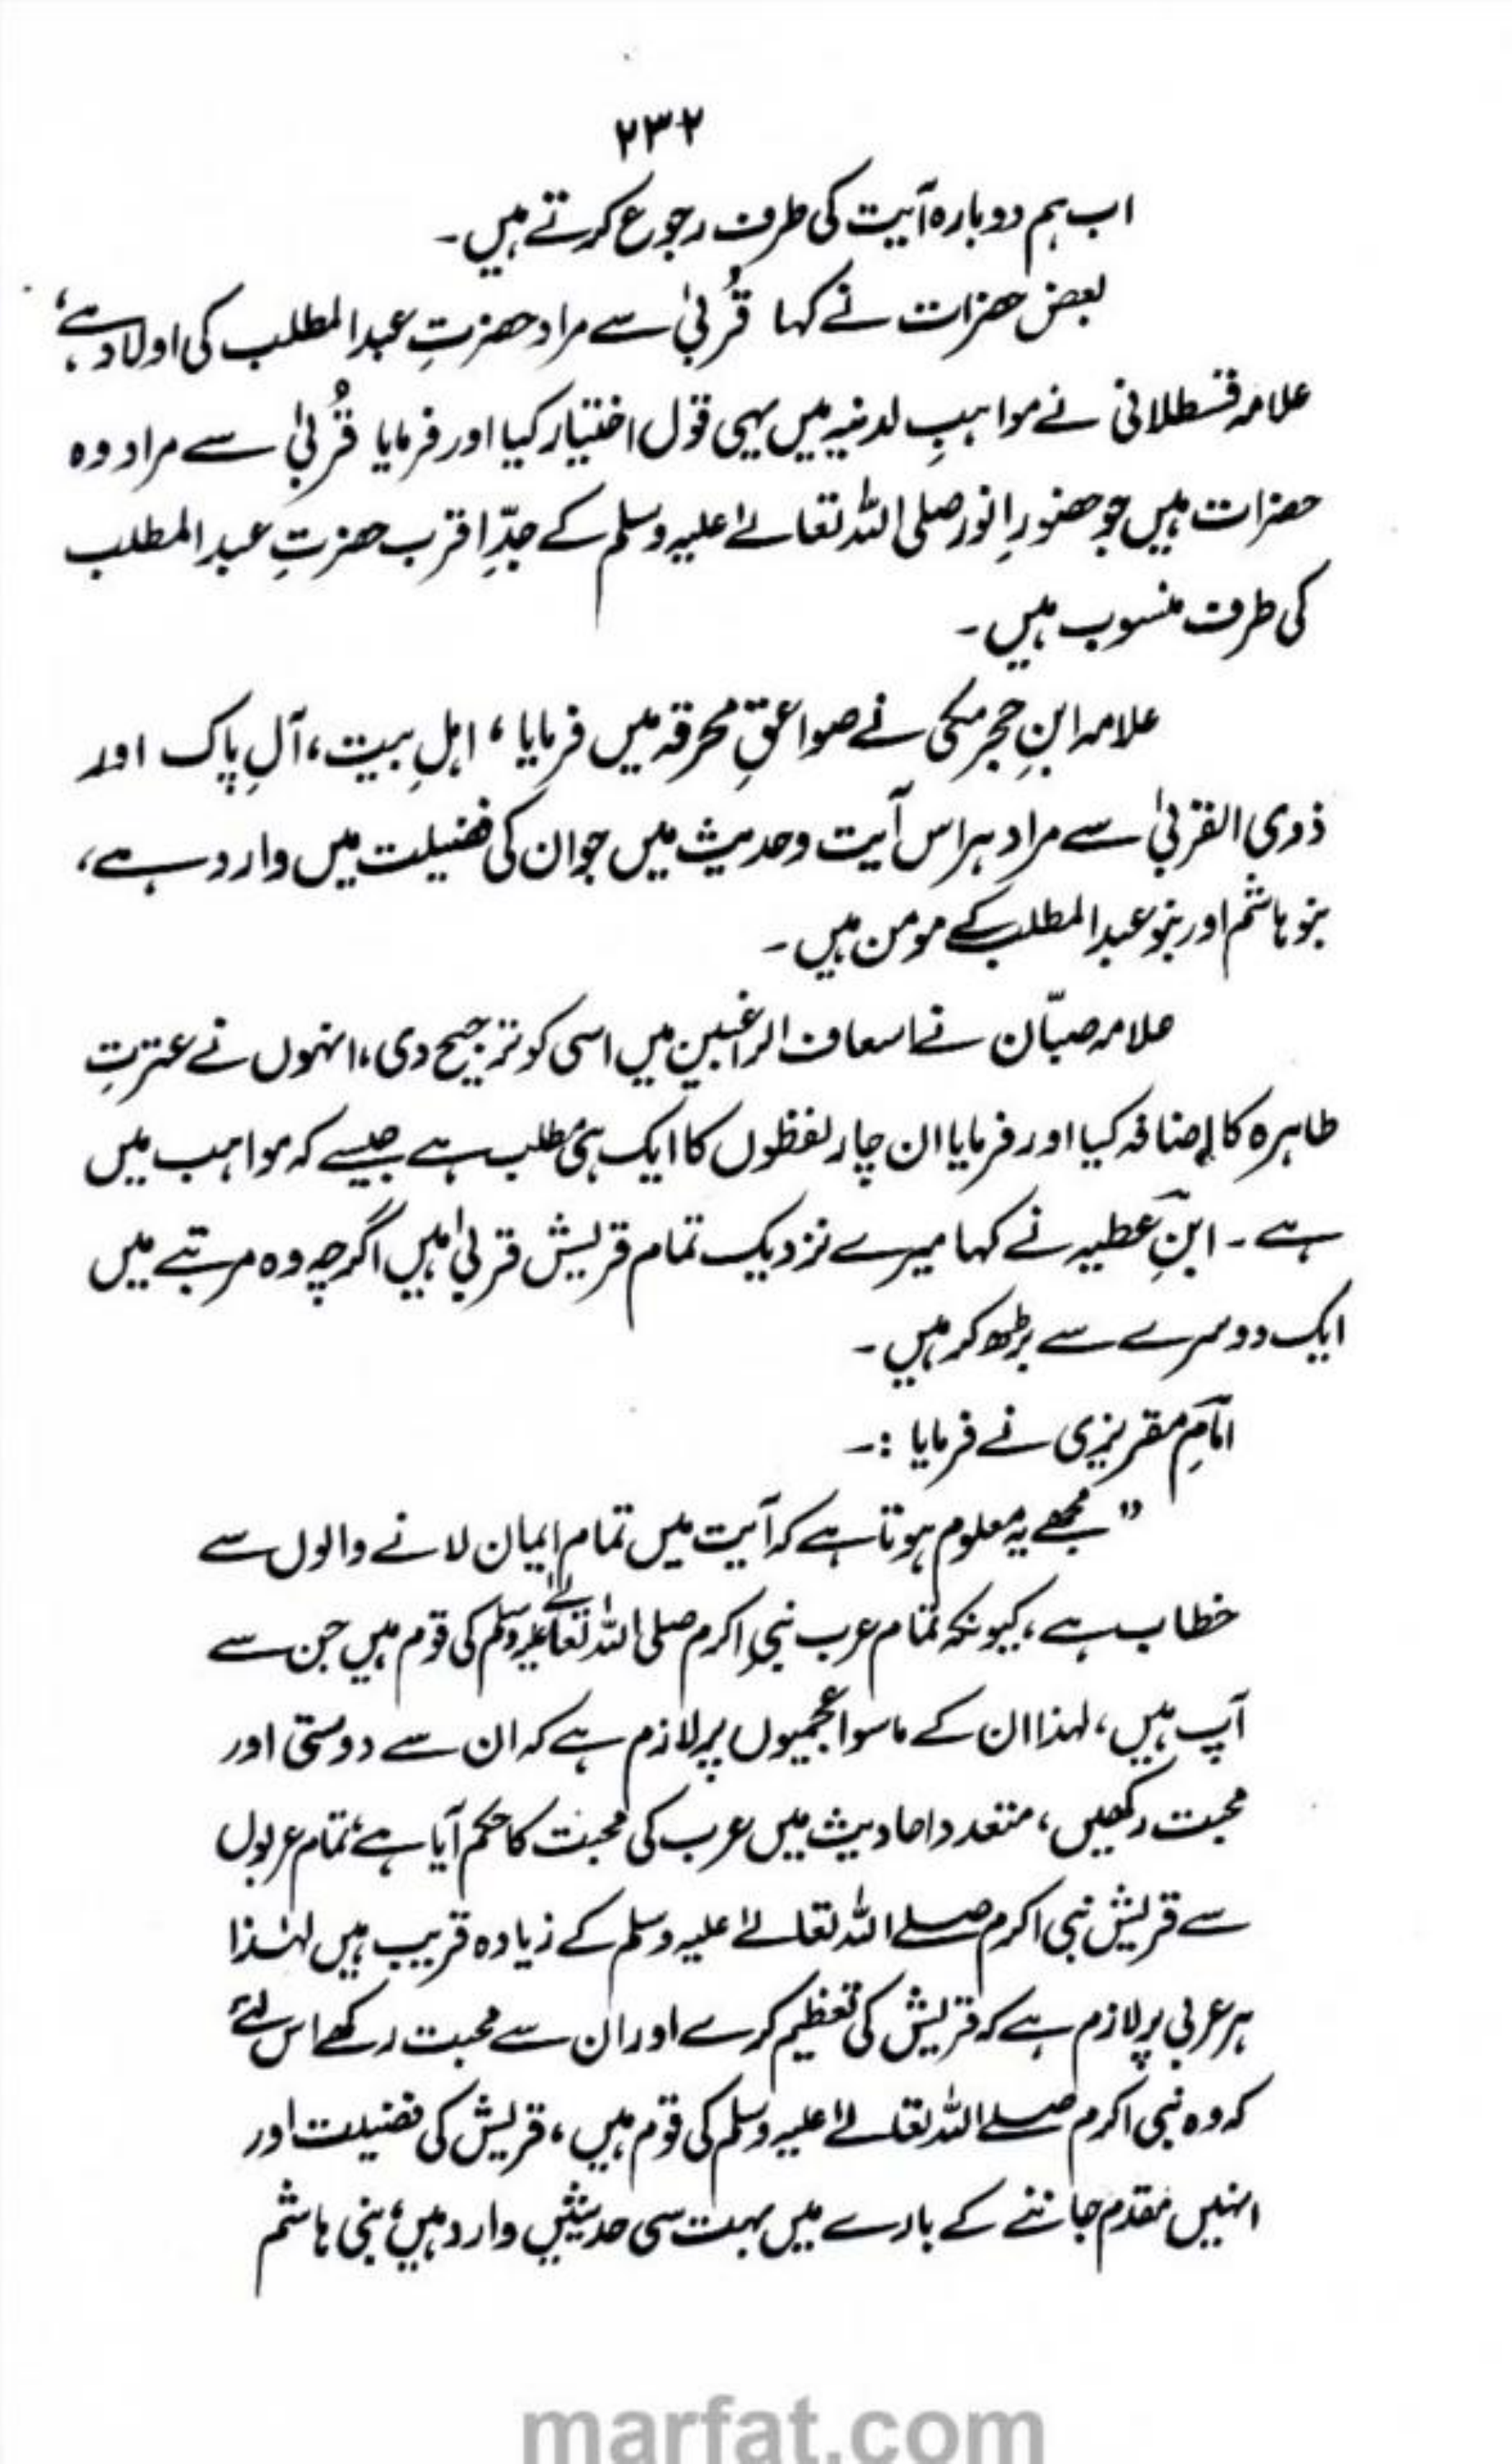 ۲۳۲
اب ہم دوبارہ آیت کی طرف رجوع کرتے ہیں۔
بعض حضرات نے کہا قُربیٰ سے مراد حضرتِ عبدالمطلب کی اولاد ہے،
علامہ قسطلانی نے مواہبِ لدنیہ میں یہی قول اختیار کیا اور فرمایا قُربیٰ سے مراد وہ
حضرات ہیں جو حضورِ انور صلی اللہ تعالےٰ علیہ وسلم کے جدِّ اقرب حضرتِ عبدالمطلب
کی طرف منسوب ہیں۔
علامہ ابنِ حجر مکی نے صواعقِ محرقہ میں فرمایا، اہلِ بیت، آلِ پاک اور
ذوی القربیٰ سے مراد ہر اس آیت و حدیث میں جو ان کی فضیلت میں وارد ہے،
بنو ہاشم اور بنو عبدالمطلب کے مومن ہیں۔
علامہ صبّان نے اسعاف الراغبین میں اسی کو ترجیح دی، انہوں نے عترتِ
طاہرہ کا اضافہ کیا اور فرمایا ان چار لفظوں کا ایک ہی مطلب ہے جیسے کہ مواہب میں
ہے۔ ابنِ عطیہ نے کہا میرے نزدیک تمام قریش قربیٰ ہیں اگرچہ وہ مرتبے میں
ایک دوسرے سے بڑھ کر ہیں۔
امامِ مقریزی نے فرمایا :۔
”مجھے یہ معلوم ہوتا ہے کہ آیت میں تمام ایمان لانے والوں سے
خطاب ہے، کیونکہ تمام عرب نبی اکرم صلی اللہ تعالےٰ علیہ وسلم کی قوم ہیں جن سے
آپ ہیں، لہذا ان کے ماسوا عجمیوں پر لازم ہے کہ ان سے دوستی اور
محبت رکھیں، متعدد احادیث میں عرب کی محبت کا حکم آیا ہے، تمام عربوں
سے قریش نبی اکرم صلے اللہ تعالےٰ علیہ وسلم کے زیادہ قریب ہیں لہٰذا
ہر عربی پر لازم ہے کہ قریش کی تعظیم کرے اور ان سے محبت رکھے اس لئے
کہ وہ نبی اکرم صلے اللہ تعالےٰ علیہ وسلم کی قوم ہیں، قریش کی فضیلت اور
انہیں مقدم جاننے کے بارے میں بہت سی حدیثیں وارد ہیں، بنی ہاشم
marfat.com